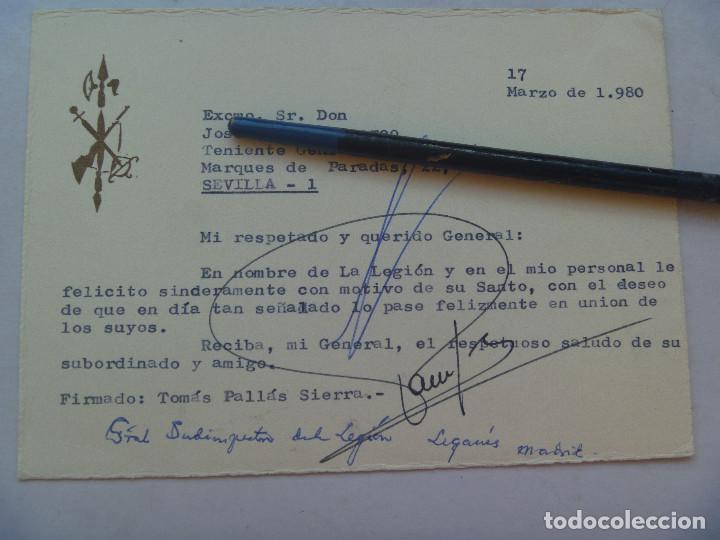 17
Marzo de 1.980
Excmo. Sr. Don
Jos
Teniente Gen
Marques de Paradas, 22,
SEVILLA - 1
Mi respetado y querido General:
En nombre de La Legión y en el mio personal le
felicito sinderamente con motivo de su Santo, con el deseo
de que en día tan señalado lo pase felizmente en union de
los suyos.
Reciba, mi General, el respetuoso saludo de su
subordinado y amigo.
Firmado: Tomás Pallás Sierra.-
Gral Subinspector de la Legión Leganés Madrid.
todocoleccion